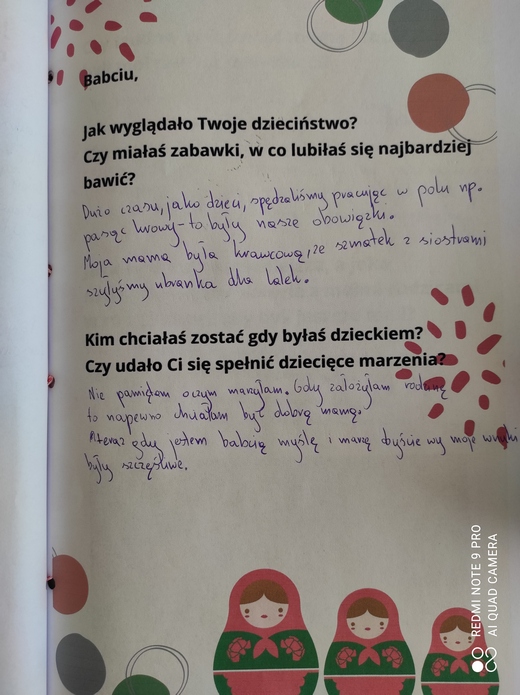 Babciu,
Jak wyglądało Twoje dzieciństwo?
Czy miałaś zabawki, w co lubiłaś się najbardziej
bawić?
Dużo czasu, jako dzieci, spędzaliśmy pracując w polu np.
pasąc krowy - to były nasze obowiązki.
Moja mama była krawcową, ze szmatek z siostrami
szyłyśmy ubranka dla lalek.
Kim chciałaś zostać gdy byłaś dzieckiem?
Czy udało Ci się spełnić dziecięce marzenia?
Nie pamiętam o czym marzyłam. Gdy założyłam rodzinę
to napewno chciałam być dobrą mamą.
A teraz gdy jestem babcią myślę i marzę abyście wy moje wnuki
były szczęśliwe.
REDMI NOTE 9 PRO
AI QUAD CAMERA